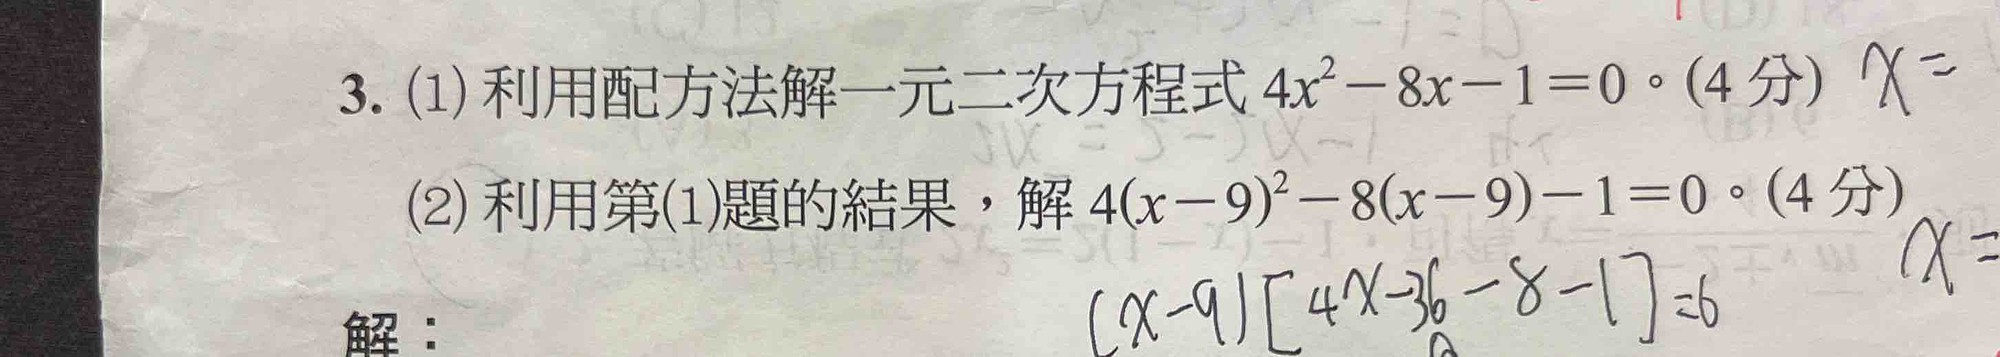 3. (1) 利用配方法解一元二次方程式 4x²－8x－1＝0。(4 分) x=
(2) 利用第(1)題的結果，解 4(x－9)²－8(x－9)－1＝0。(4 分)
x=
(x-9)[4x-36-8-1]=0
解：